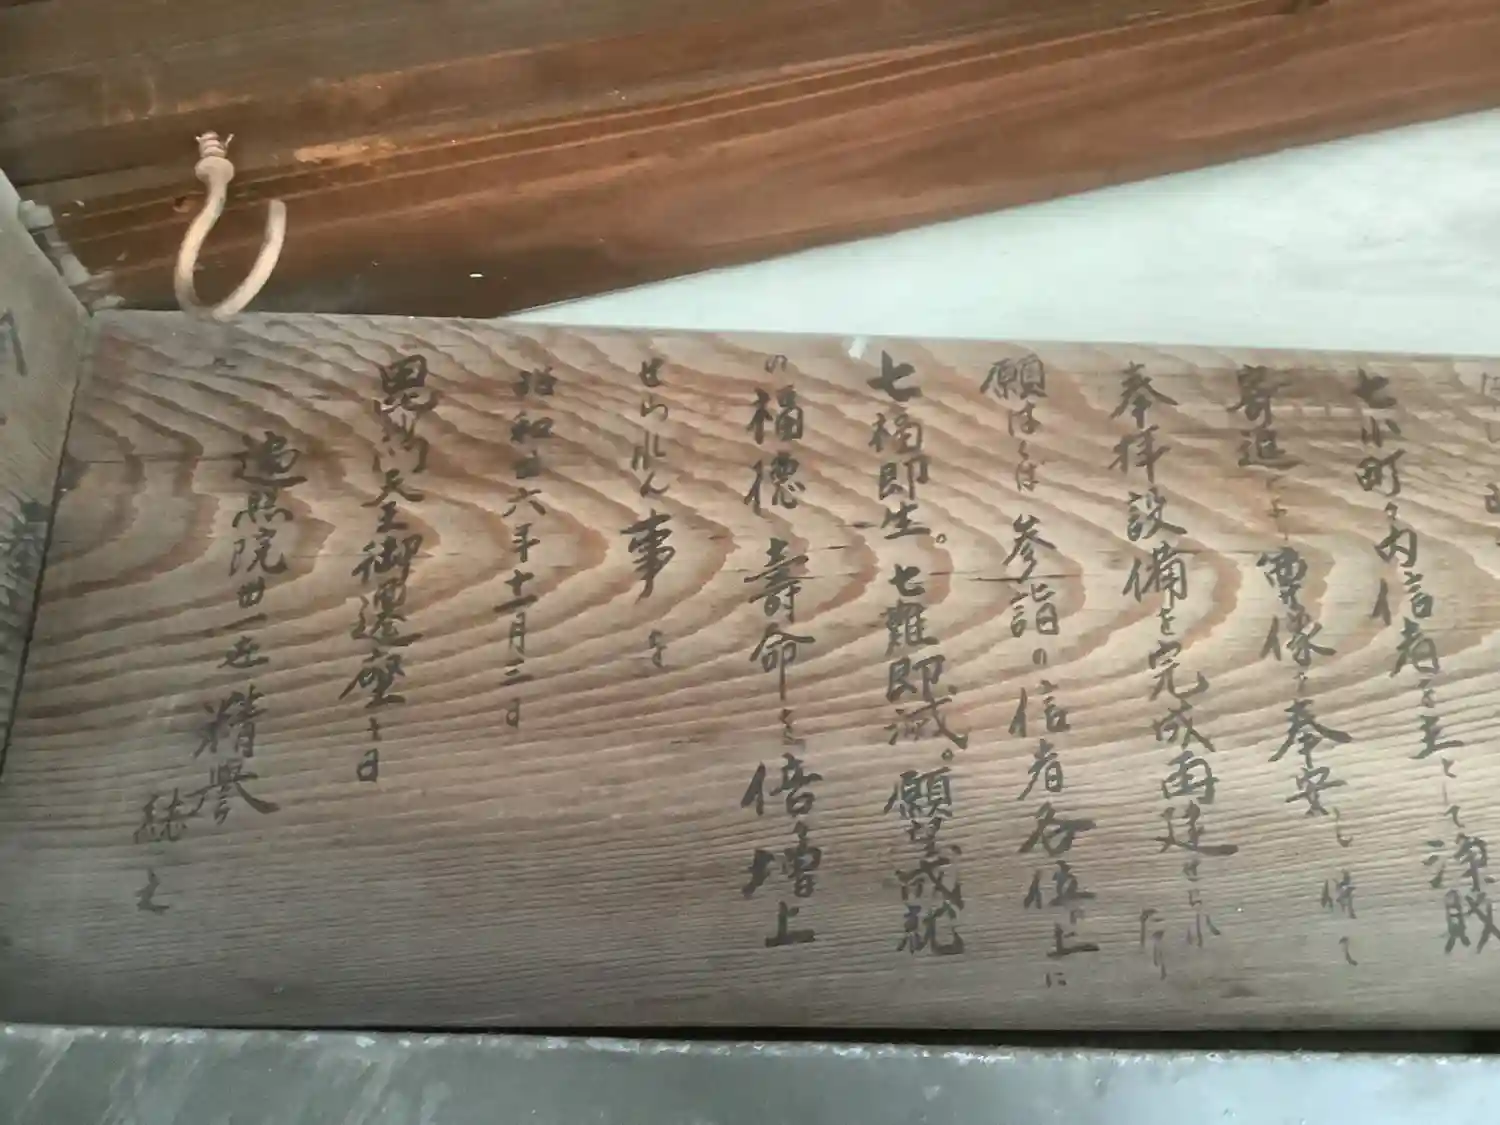 七小町々内信者を主として浄財
寄進により尊像を奉安し併て
奉拝設備を完成再建せられたり
願はくは参詣の信者各位の上に
七福即生。七難即滅。願望成就
の福徳寿命を倍々増上
せられん事を
昭和廿六年十一月三日
毘沙門天王御遷座之日
遍照院世一世精誉
誌之